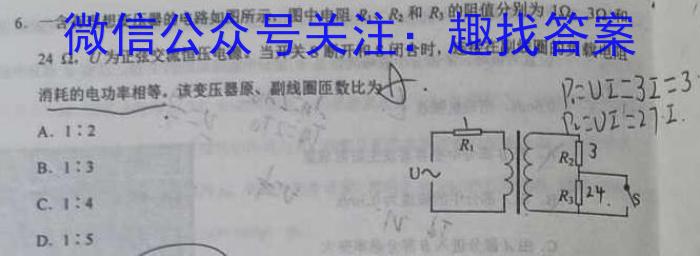 6. 一含有理想变压器的电路如图所示，图中电阻 R₁、R₂ 和 R₃ 的阻值分别为 1Ω、3Ω 和
微信公众号关注：趣找答案
24 Ω，U 为正弦交流恒压电源，当开关 S 断开和闭合时，
消耗的电功率相等，该变压器原、副线圈匝数比为
P₁=UI=3I=3
P₂=UI=27·I.
A. 1∶2
B. 1∶3
C. 1∶4
D. 1∶5
1
R₁
U～
R₂ 3
R₃ 24.
S